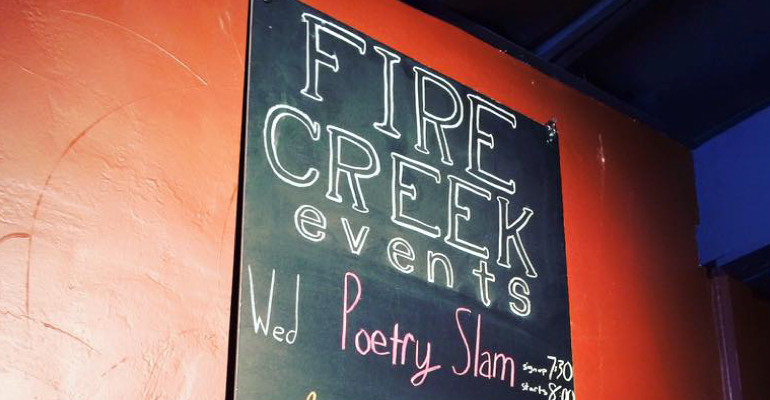 FIRE
CREEK
events
Wed Poetry Slam sign up 7:30
starts 8:00